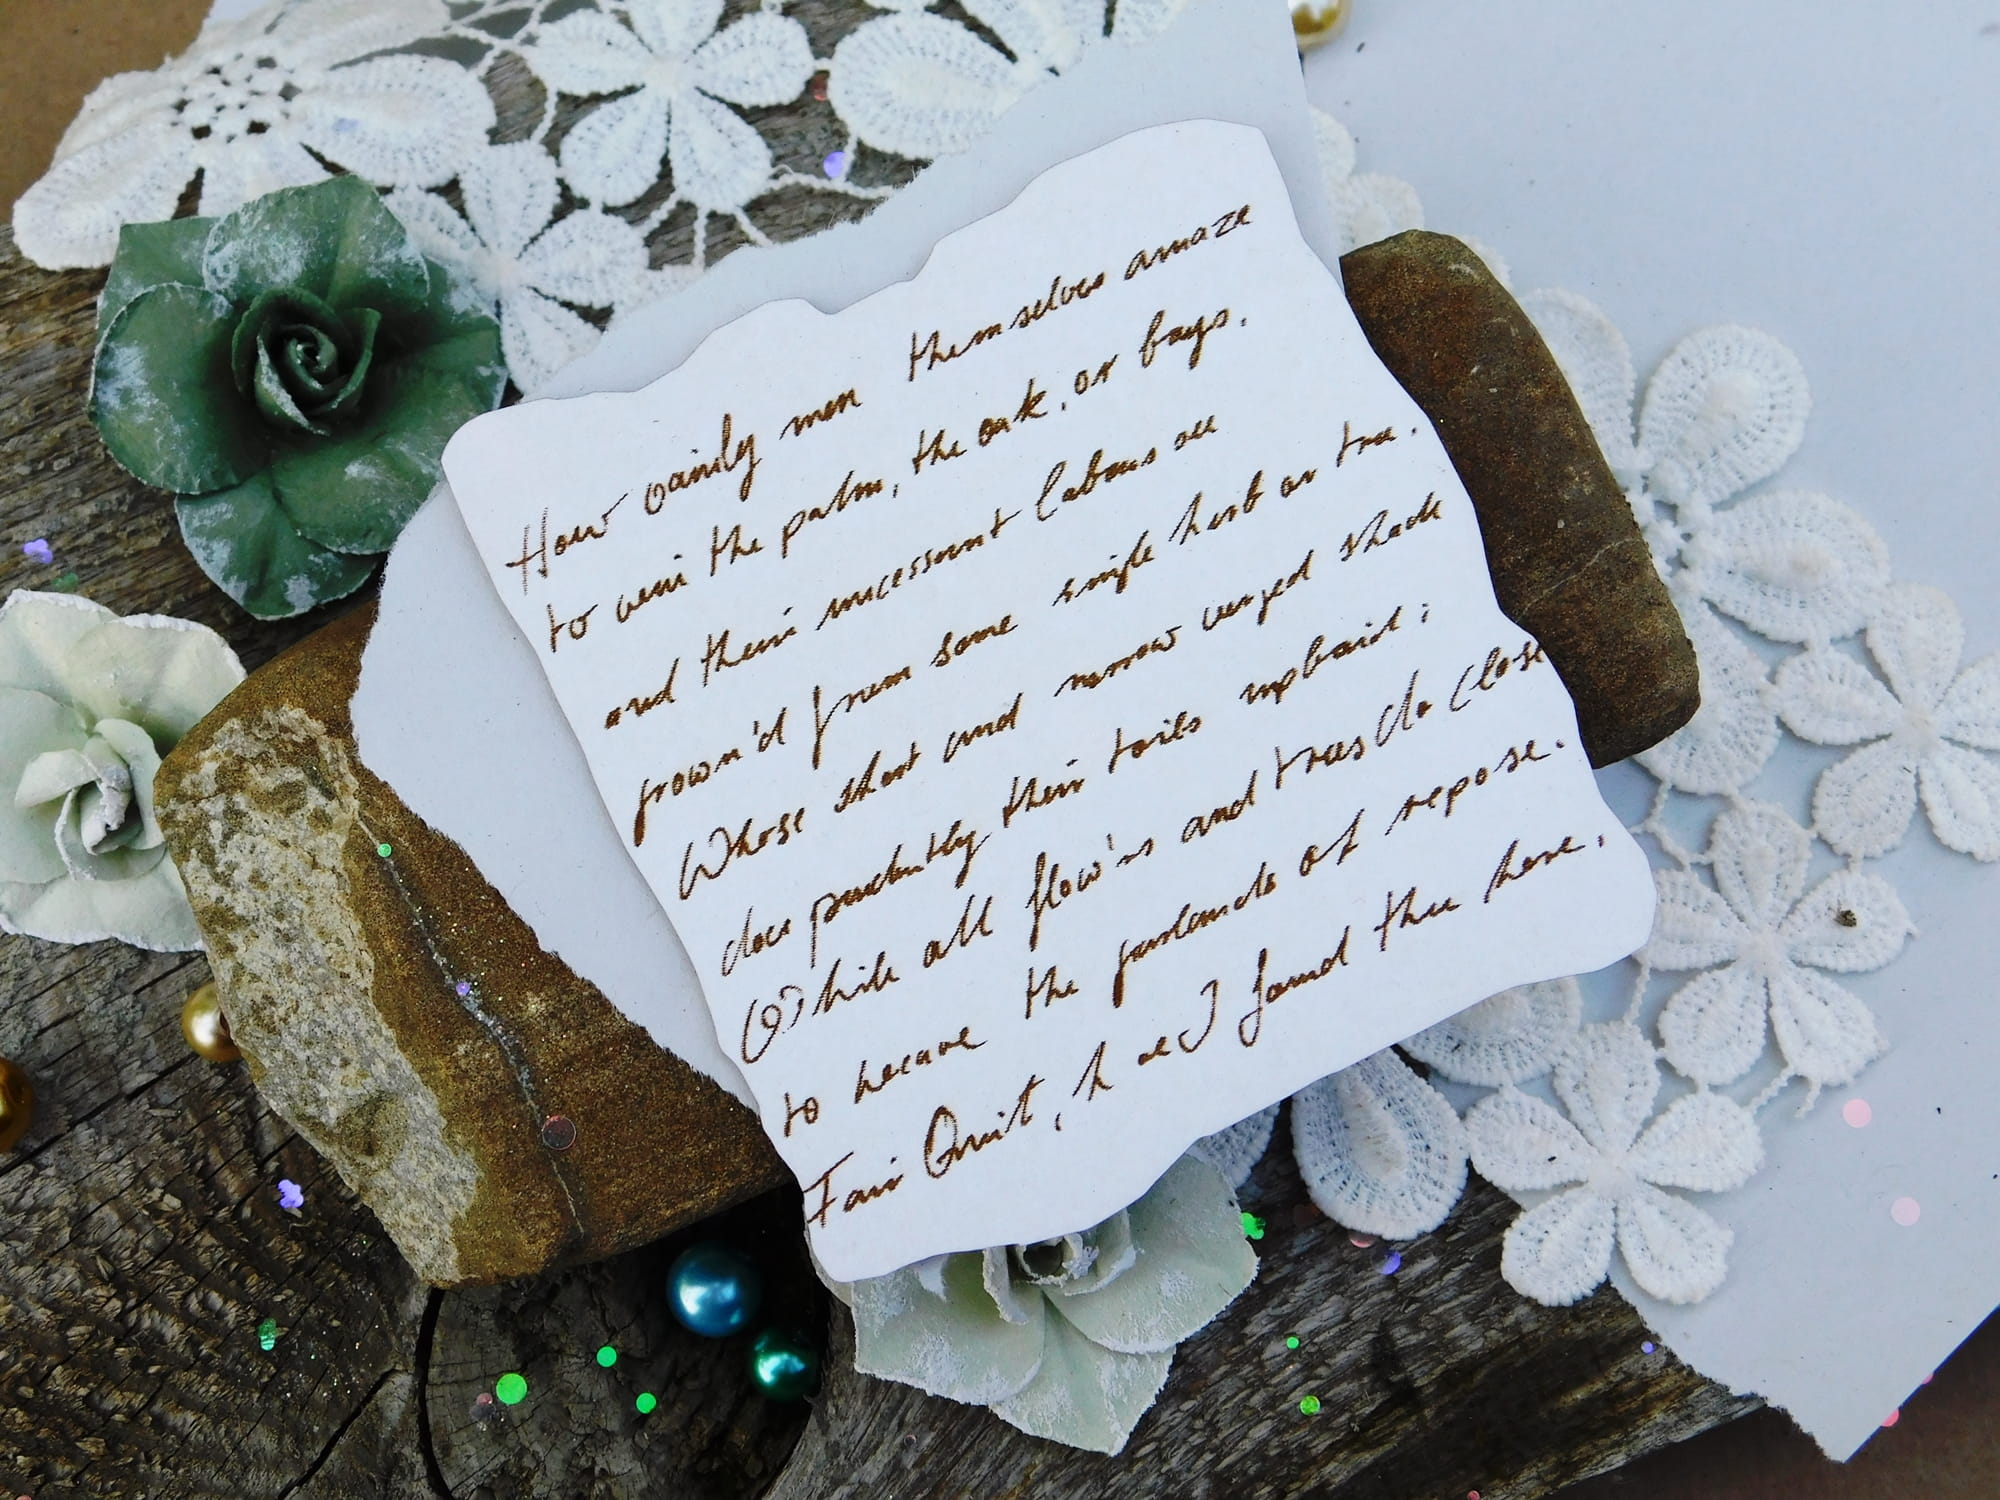 How vainly men themselves amaze
to win the palm, the oak, or bays.
and their incessant labours see
crown'd from some single herb or tree.
Whose short and narrow verged shade
does prudently their toils upbraid;
While all flow'rs and trees do close
to weave the garlands of repose.
Fair Quiet, have I found thee here,